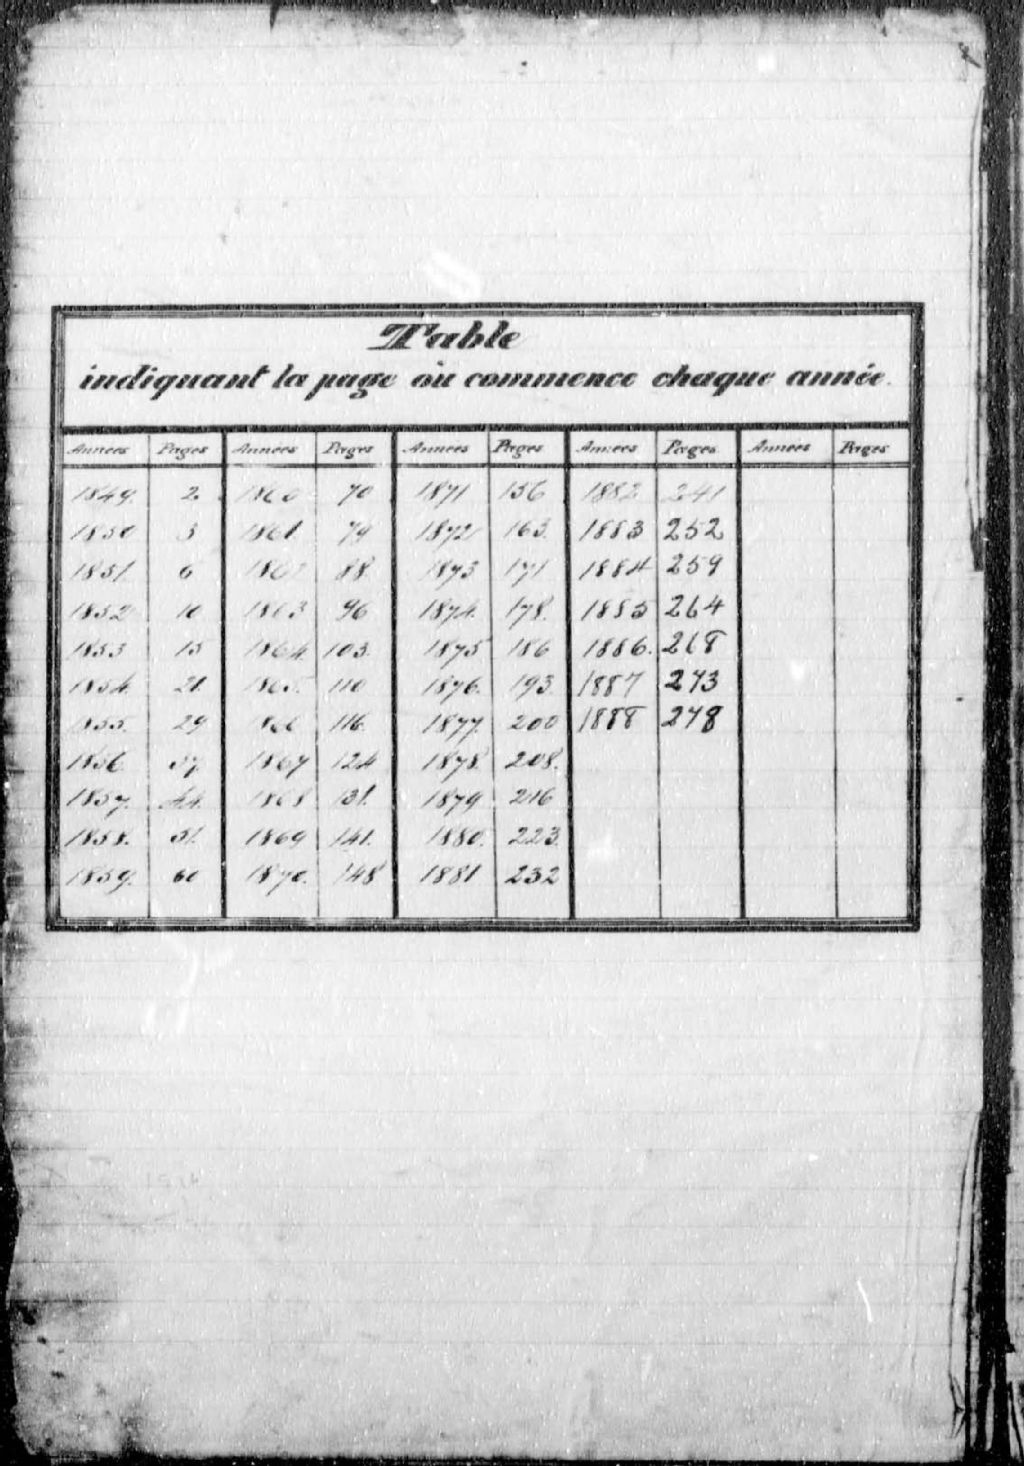 Table
indiquant la page où commence chaque année.
Années Pages Années Pages Années Pages Années Pages Années Pages
1849. 2 1860 70 1871 156 1882 241
1850 3 1861. 79 1872 163. 1883 252
1851. 6 1862 88. 1873 171 1884 259
1852 10 1863 96 1874. 178. 1885 264
1853 15 1864. 103. 1875 186 1886. 268
1854. 21. 1865. 110 1876. 193. 1887 273
1855. 29 1866 116. 1877. 200 1888 278
1856. 37. 1867 124 1878. 208.
1857. 44. 1868 131. 1879 216
1858. 51. 1869 141. 1880. 223.
1859. 60 1870. 148 1881 232